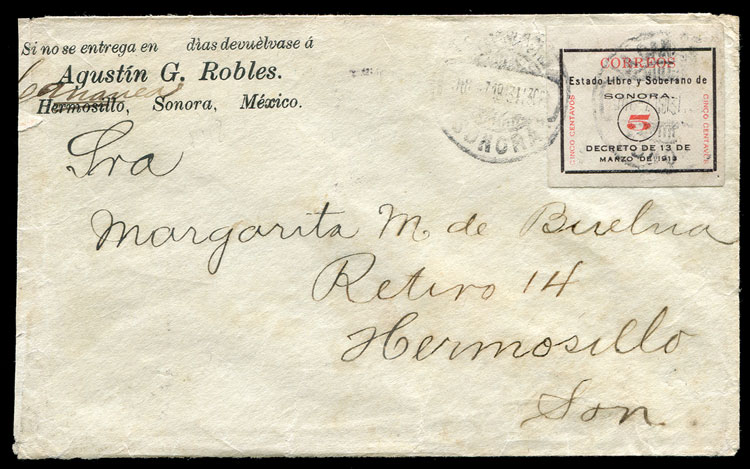 Si no se entrega en dìas devuèlvase á
Agustín G. Robles.
Cananea
Hermosillo, Sonora, México.
CORREOS
Estado Libre y Soberano de
SONORA.
5
DECRETO DE 13 DE
MARZO DE 1913
CINCO CENTAVOS
CINCO CENTAVOS
SONORA
Sra
Margarita M. de Buelna
Retiro 14
Hermosillo
Son.